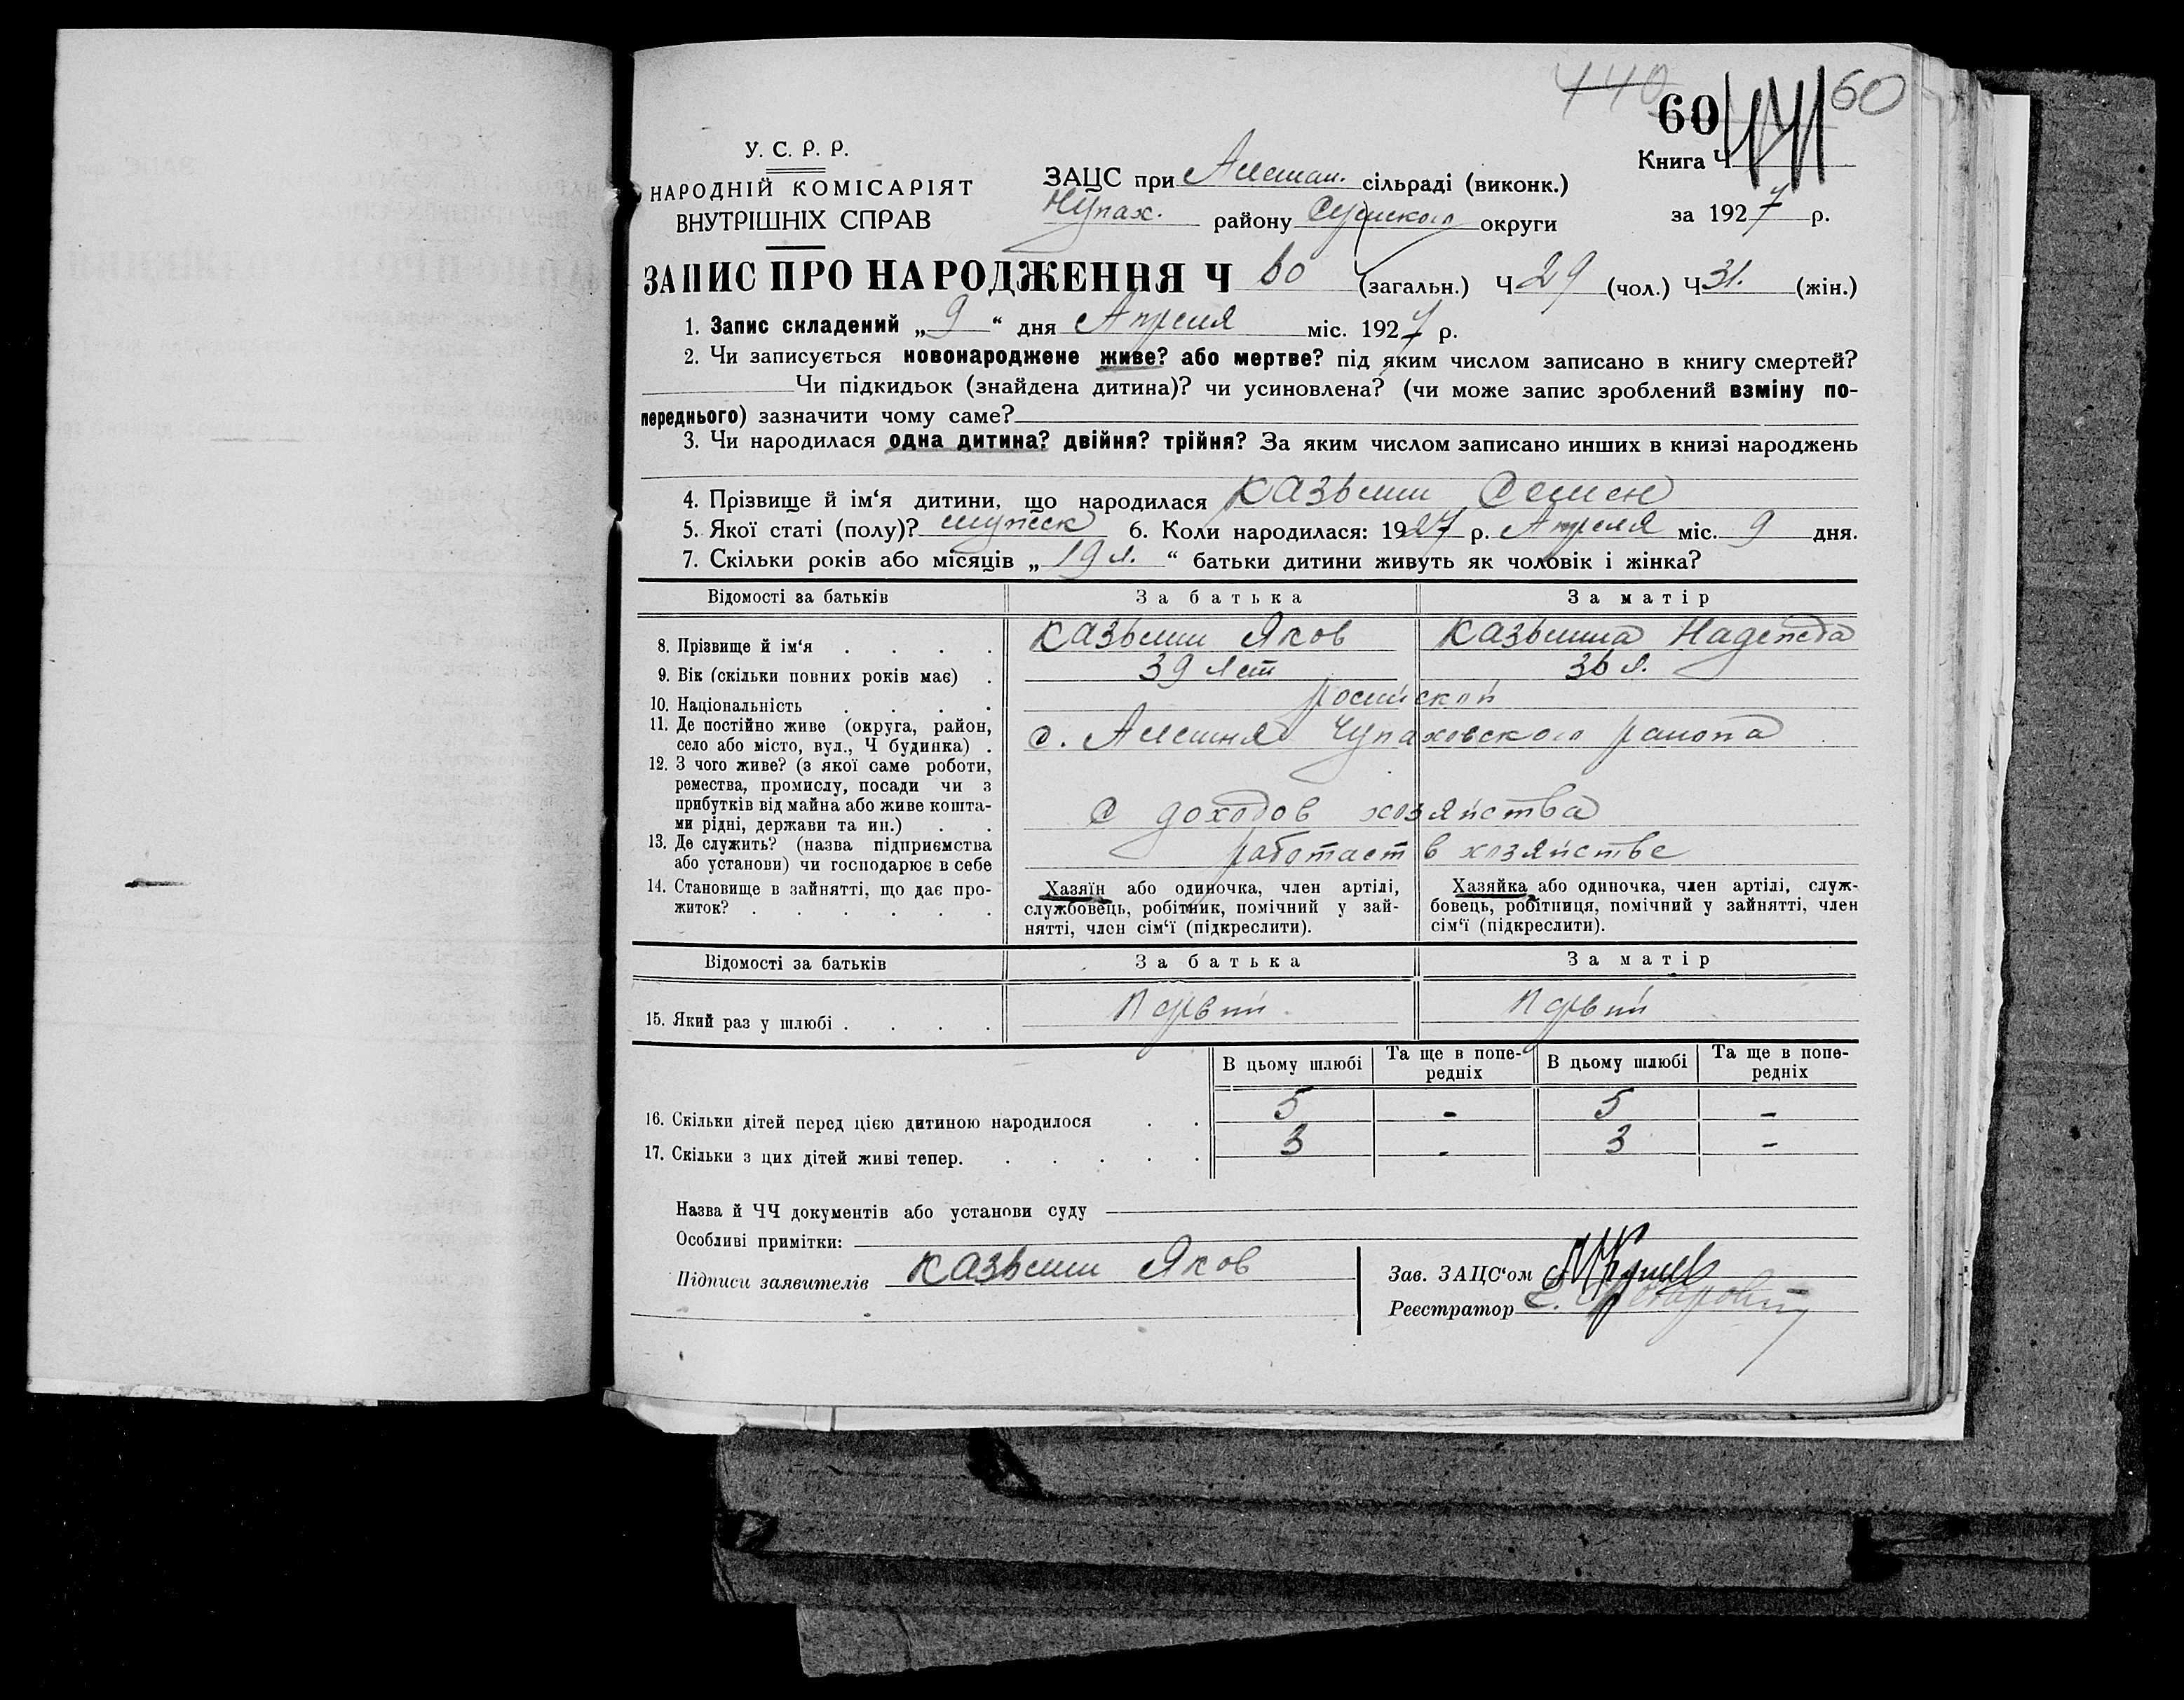 440
60 441 60
У. С. Р. Р.
НАРОДНІЙ КОМІСАРІЯТ
ВНУТРІШНІХ СПРАВ
Книга Ч
ЗАЦС при Алешан. сільраді (виконк.)
Чупах. району Сумского округи
за 1927 р.
ЗАПИС ПРО НАРОДЖЕННЯ Ч 60 (загальн.) Ч 29 (чол.) Ч 31. (жін.)
1. Запис складений „ 9 “ дня Апреля міс. 1927 р.
2. Чи записується новонароджене живе? або мертве? під яким числом записано в книгу смертей?
Чи підкидьок (знайдена дитина)? чи усиновлена? (чи може запис зроблений взміну по-
переднього) зазначити чому саме?
3. Чи народилася одна дитина? двійня? трійня? За яким числом записано инших в книзі народжень
4. Прізвище й ім‘я дитини, що народилася Казьмин Семен
5. Якої статі (полу)? мужеск 6. Коли народилася: 1927 р. Апреля міс. 9 дня.
7. Скільки років або місяців „ 19 л. “ батьки дитини живуть як чоловік і жінка?
Відомості за батьків За батька За матір
8. Прізвище й ім‘я . . . . Казьмин Яков Казьмина Надежда
9. Вік (скільки повних років має) . 39 лет 36 л.
10. Національність . . . . росийской
11. Де постійно живе (округа, район,
село або місто, вул., Ч будинка) . с. Алешня Чупаховского раиона
12. З чого живе? (з якої саме роботи,
ремества, промислу, посади чи з
прибутків від майна або живе кошта-
ми рідні, держави та ин.) . . С доходов хозяйства
13. Де служить? (назва підприємства
або установи) чи господарює в себе работает в хозяйстве
14. Становище в зайнятті, що дає про-
житок? . . . . . .
Хазяїн або одиночка, член артілі,
службовець, робітник, помічний у зай-
нятті, член сім‘ї (підкреслити).
Хазяйка або одиночка, член артілі, служ-
бовець, робітниця, помічний у зайнятті, член
сім‘ї (підкреслити).
Відомості за батьків За батька За матір
15. Який раз у шлюбі . . . . Первий Первий
В цьому шлюбі Та ще в попе-
редніх В цьому шлюбі Та ще в попе-
редніх
16. Скільки дітей перед цією дитиною народилося . . 5 - 5 -
17. Скільки з цих дітей живі тепер. . . . . . 3 - 3 -
Назва й ЧЧ документів або установи суду
Особливі примітки:
Підписи заявителів Казьмин Яков
Зав. ЗАЦС‘ом
Реєстратор